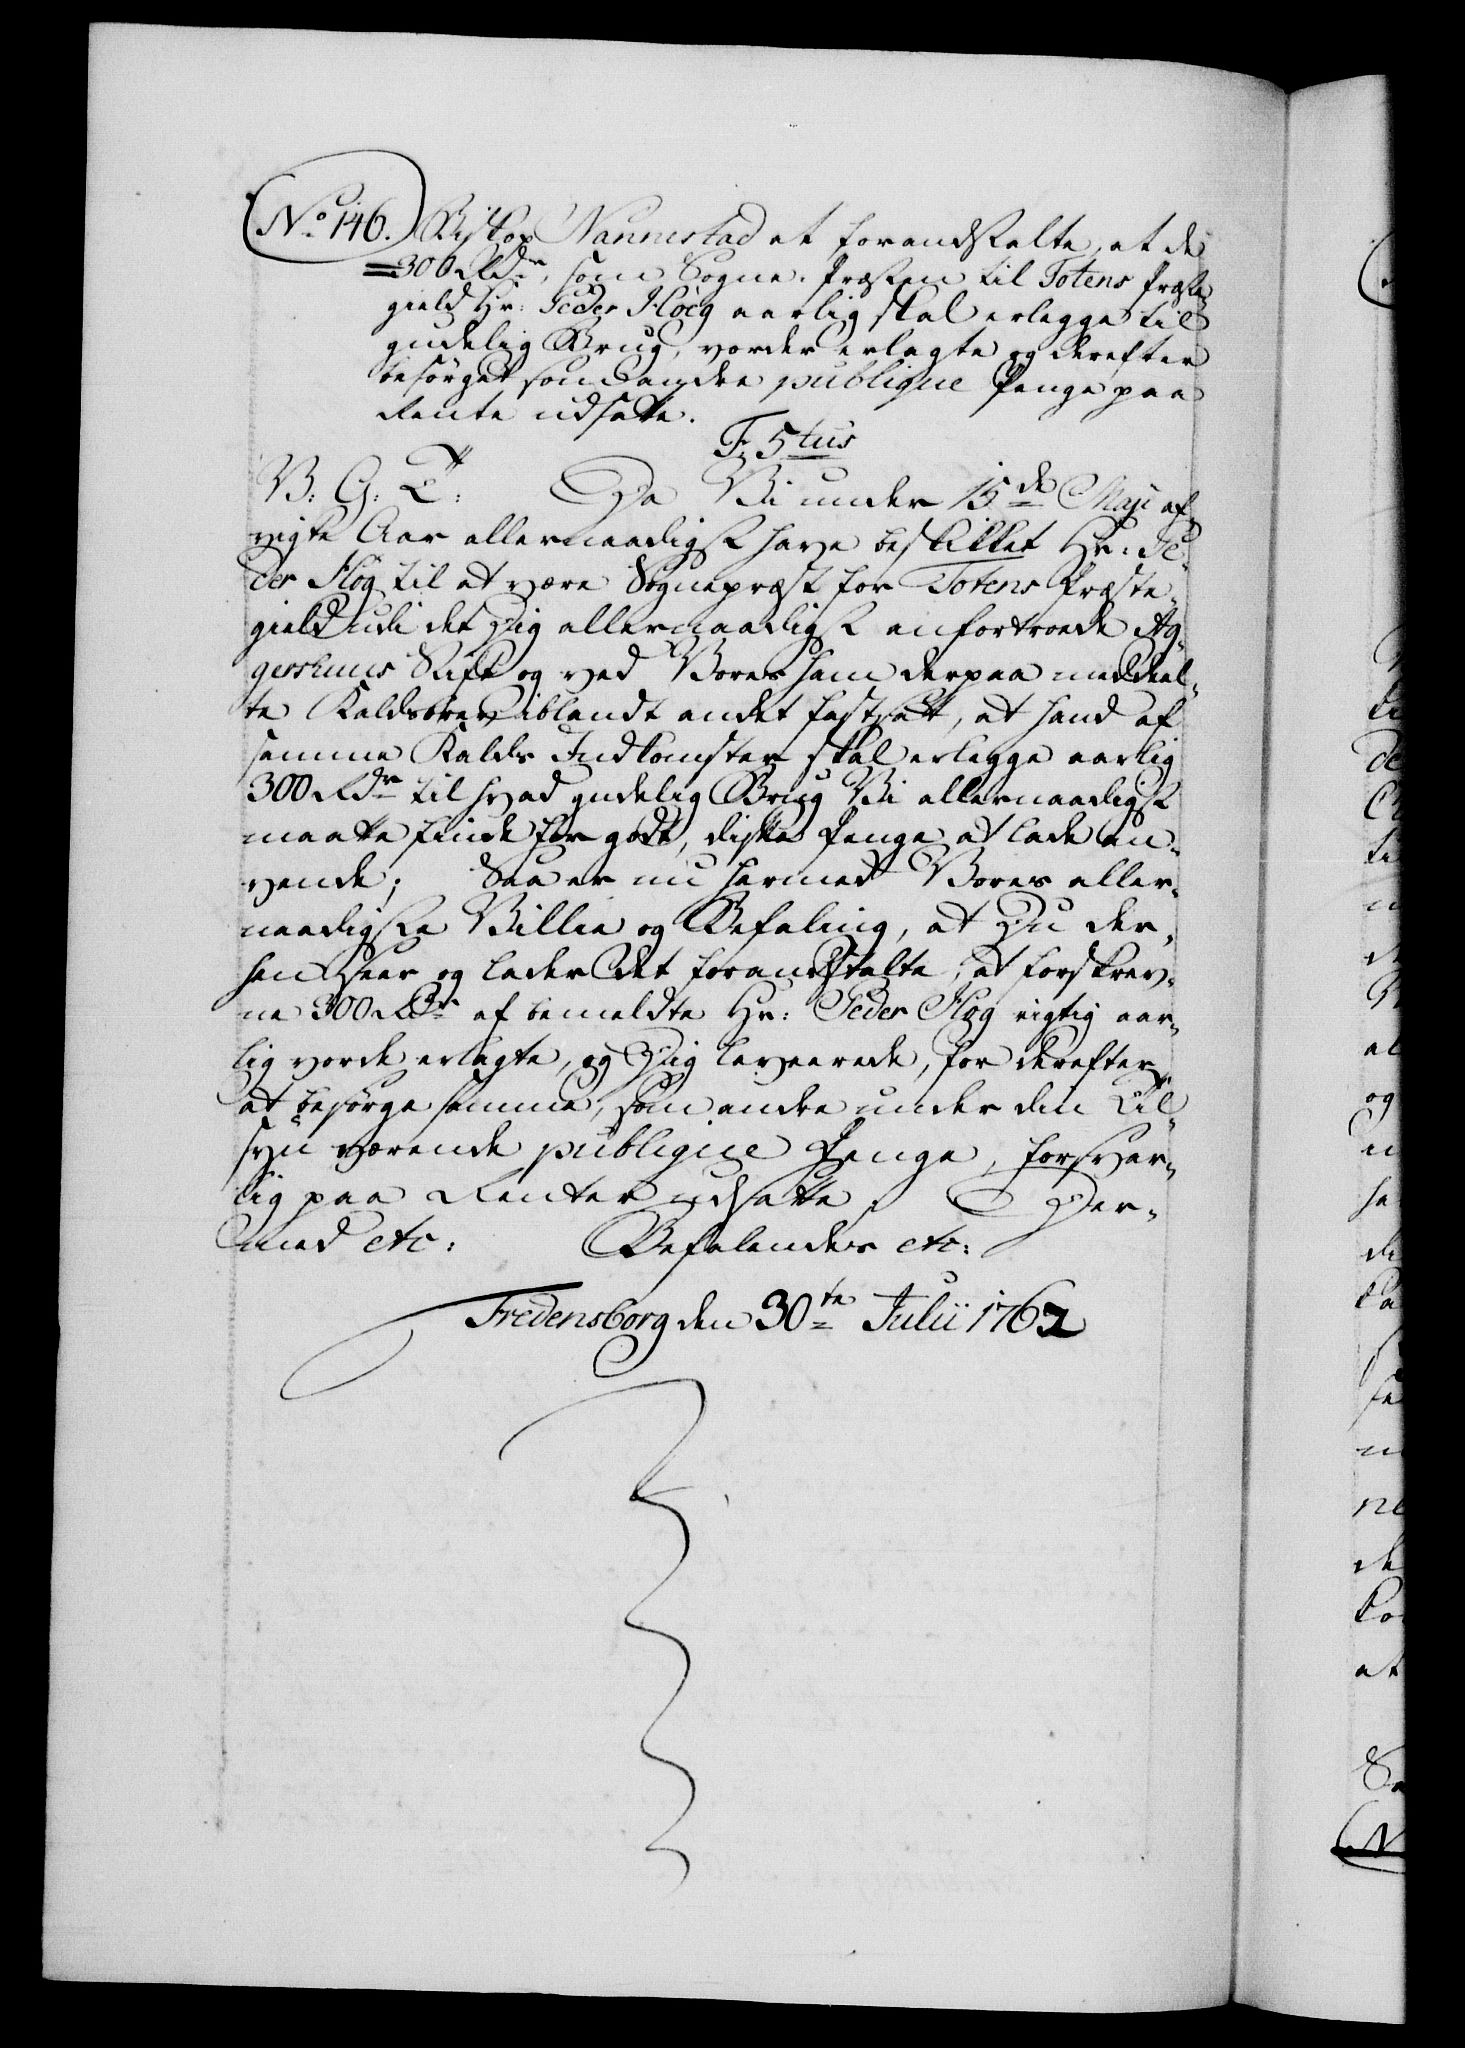 No. 146. Biskop Nannestad at foranstalte, at de
300 Rdr, som Sogne-Præsten til Totens Præste
gield Hr: Peder Høeg aarlig skal erlegge til
gudelig Brug, vorder erlagte og derefter
besørget som andre publique Penge paa
Rente udsatte.
F. 5tus
V: G: T: Da Vi under 15de Maji af-
vigte Aar allernaadigst have beskikket Hr: Pe-
der Høg til at være Sognepræst for Totens Præste-
gield udi det dig allernaadigst anfortroede Ag-
gershuus Stift og ved Vores ham derpaa meddeel-
te Kaldsbrev iblandt andet fastsatt, at hand af
samme Kalds Indkomster skal erlegge aarlig
300 Rdr til hvad gudelig Brug Vi allernaadigst
maatte finde for godt, diske Penge at lade an-
vende; Saa er nu hermed Vores aller-
naadigste Villie og Befaling, at Du der-
hen seer og lader det foranstalte, at forskrev-
ne 300 Rdr af bemeldte Hr: Peder Høg rigtig aar-
lig vorde erlagte, og Dig leverede, for derefter
at besørge samme, som andre under din Til-
syn værende publique Penge, forsvar-
lig paa Renter udsatte, Der-
med etc: Befalendes etc:
Fredensborg den 30te Julii 1762